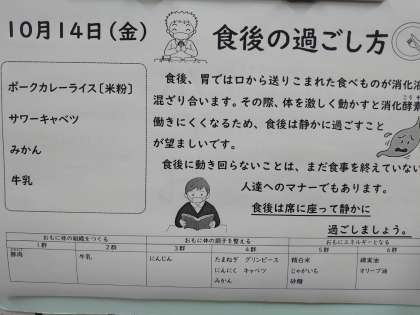 10月14日(金)
食後の過ごし方
ポークカレーライス[米粉]
サワーキャベツ
みかん
牛乳
食後、胃では口から送りこまれた食べものが消化液
混ざり合います。その際、体を激しく動かすと消化酵素
働きにくくなるため、食後は静かに過ごすこと
が望ましいです。
食後に動き回らないことは、まだ食事を終えていない
人達へのマナーでもあります。
食後は席に座って静かに
過ごしましょう。
おもに体の組織をつくる おもに体の調子を整える おもにエネルギーとなる
1群 2群 3群 4群 5群 6群
豚肉 牛乳 にんじん たまねぎ グリンピース 精白米 綿実油
にんにく キャベツ じゃがいも オリーブ油
みかん 砂糖